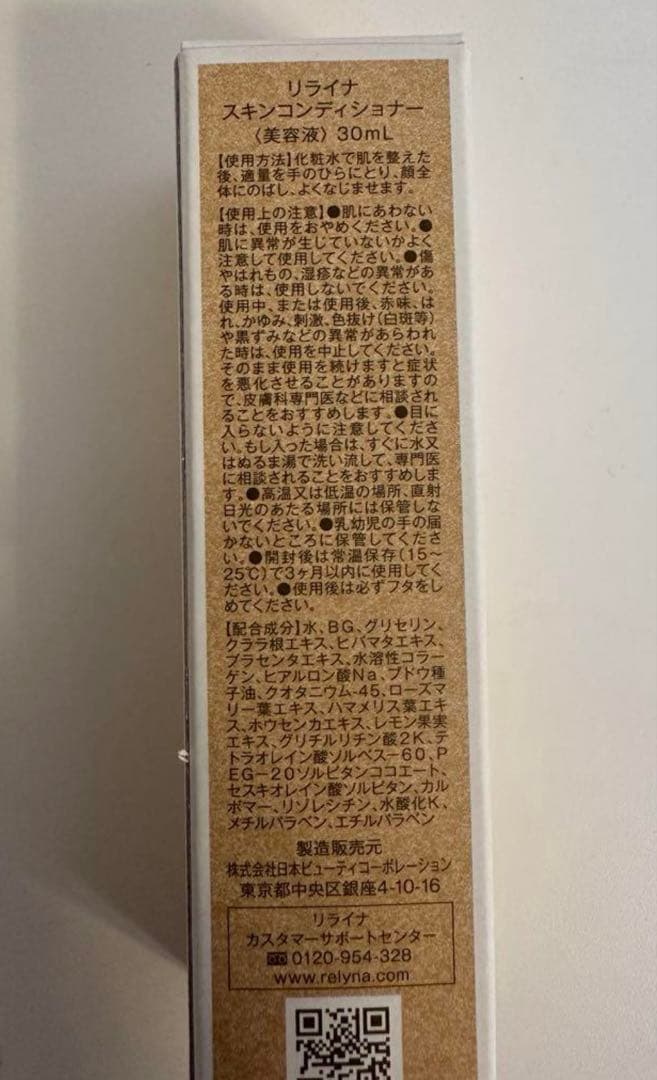 リライナ
スキンコンディショナー
〈美容液〉30mL
【使用方法】化粧水で肌を整えた
後、適量を手のひらにとり、顔全
体にのばし、よくなじませます。
【使用上の注意】●肌にあわない
時は、使用をおやめください。●
肌に異常が生じていないかよく
注意して使用してください。●傷
やはれもの、湿疹などの異常があ
る時は、使用しないでください。
使用中、または使用後、赤味、は
れ、かゆみ、刺激、色抜け(白斑等)
や黒ずみなどの異常があらわれ
た時は、使用を中止してください。
そのまま使用を続けますと症状
を悪化させることがありますの
で、皮膚科専門医などに相談され
ることをおすすめします。●目に
入らないように注意してくださ
い。もし入った場合は、すぐに水又
はぬるま湯で洗い流して、専門医
に相談されることをおすすめしま
す。●高温又は低温の場所、直射
日光のあたる場所には保管しな
いでください。●乳幼児の手の届
かないところに保管してくださ
い。●開封後は常温保存(15~
25℃)で3ヶ月以内に使用してく
ださい。●使用後は必ずフタをし
めてください。
【配合成分】水、BG、グリセリン、
クララ根エキス、ヒバマタエキス、
プラセンタエキス、水溶性コラー
ゲン、ヒアルロン酸Na、ブドウ種
子油、クオタニウム-45、ローズマ
リー葉エキス、ハマメリス葉エキ
ス、ホウセンカエキス、レモン果実
エキス、グリチルリチン酸2K、テ
トラオレイン酸ソルベス-60、P
EG-20ソルビタンココエート、
セスキオレイン酸ソルビタン、カル
ボマー、リゾレシチン、水酸化K、
メチルパラベン、エチルパラベン
製造販売元
株式会社日本ビューティコーポレーション
東京都中央区銀座4-10-16
リライナ
カスタマーサポートセンター
0120-954-328
www.relyna.com